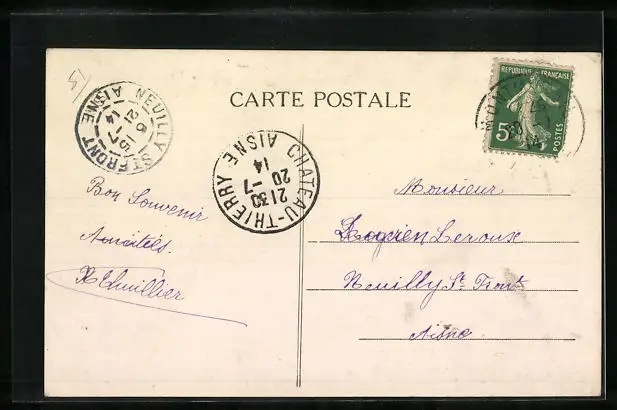 5/
NEUILLY ST FRONT
6 15
21-7
14
AISNE
CARTE POSTALE
CHATEAU-THIERRY
2130
20-7
14
AISNE
REPUBLIQUE FRANÇAISE
5
POSTES
Bon Souvenir
Amitiés.
Monsieur
Leroux
Neuilly St Front
Aisne